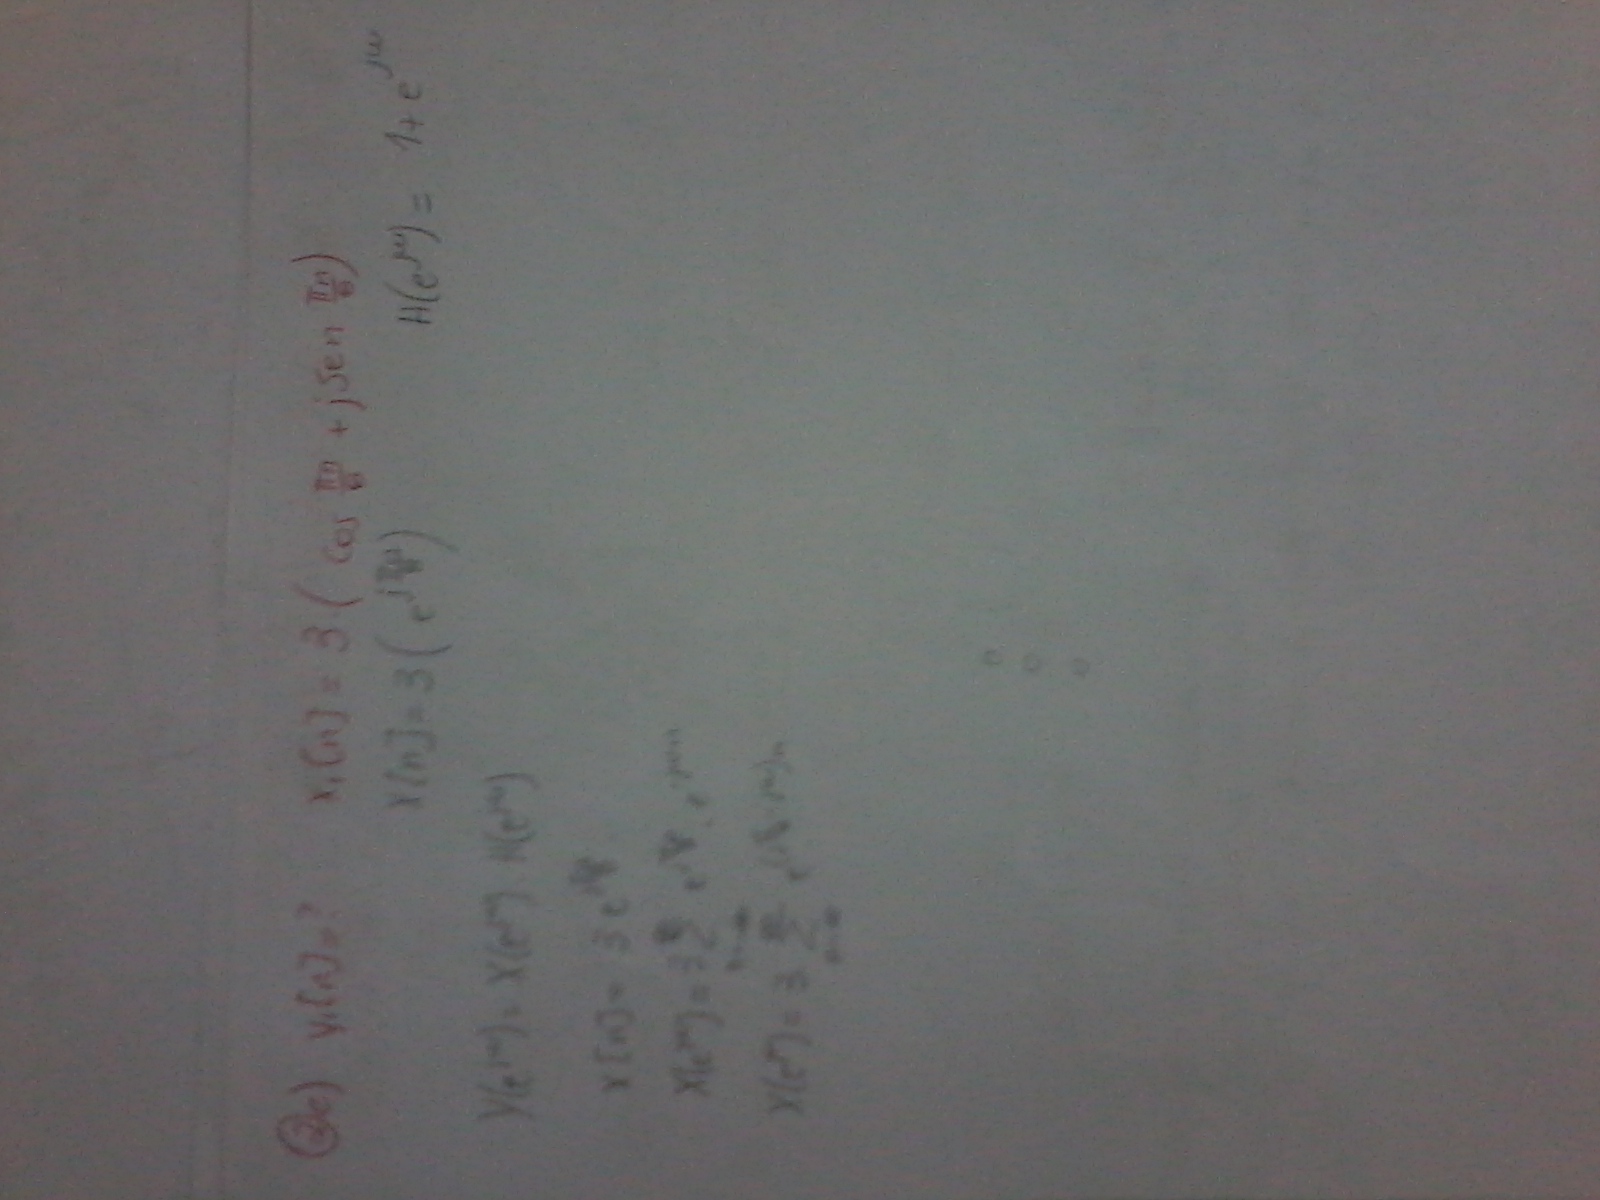 2c) y₁[n]=? x₁[n] = 3 ( cos πn/6 + j sen πn/6 )
X[n] = 3 ( e^{jπn/6} ) H(e^{jω}) = 1 + e^{jω}
Y(e^{jω}) = X(e^{jω}) . H(e^{jω})
X[n] = 3 e^{jπn/6}
X(e^{jω}) = 3 ∑_{n=-∞}^{∞} e^{jπn/6} . e^{-jωn}
X(e^{jω}) = 3 ∑_{n=-∞}^{∞} e^{(jπ/6 - jω)n}